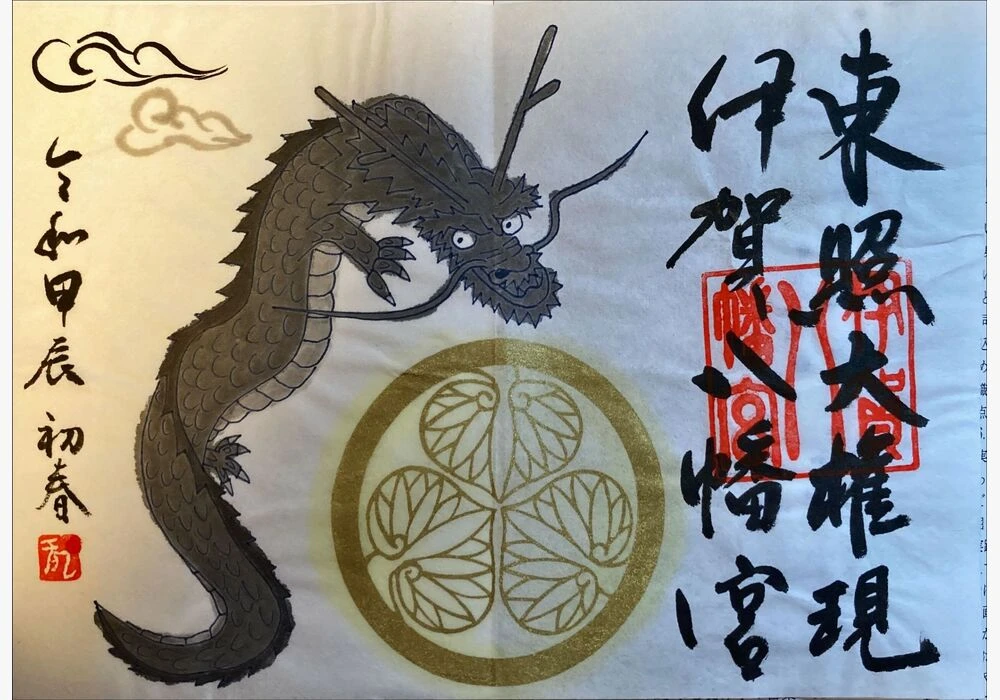 東照大権現
伊賀八幡宮
伊賀
八
幡宮
令和甲辰 初春